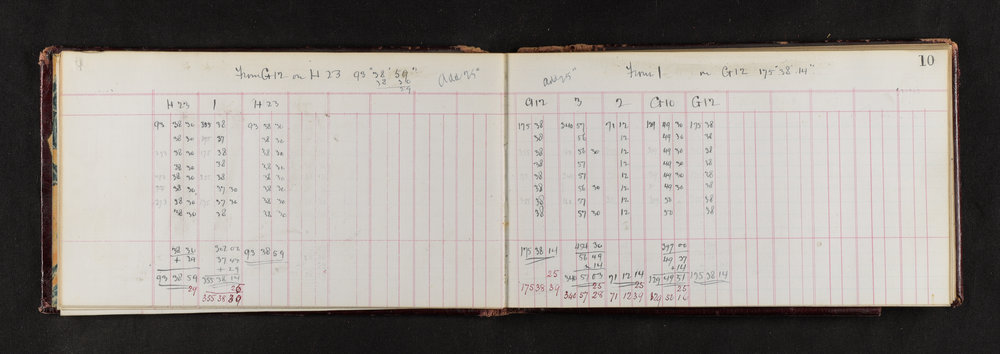 From G12 on H 23 93° 38' 59"
add 25"
H 23 1 H 23
93 38 30 355 38 93 38 30
38 30 37 38 30
38 30 38 38 30
38 30 38 38 30
38 30 38 38 30
38 30 37 30 38 30
38 30 37 30 38 30
38 30 38 38 30
38 30 302 00 93 38 59
+ 29 37 45
+ 29
93 38 59 355 38 14
29 25
355 38 39
10
add 25"
From 1 on G12 175° 38' 14"
G12 3 2 G10 G12
175 38 340 57 71 12 129 49 30 175 38
38 56 12 49 30 38
38 56 30 12 49 30 38
38 57 12 49 30 38
38 57 12 49 30 38
38 56 30 12 49 30 38
38 57 12 50 38
38 57 30 12 50 38
175 38 14 454 30 397 00
56 49 49 37
+ 14 + 14
25 340 57 03 71 12 14 129 49 51 175 38 14
25 25 25
175 38 39 340 57 28 71 12 39 129 50 16